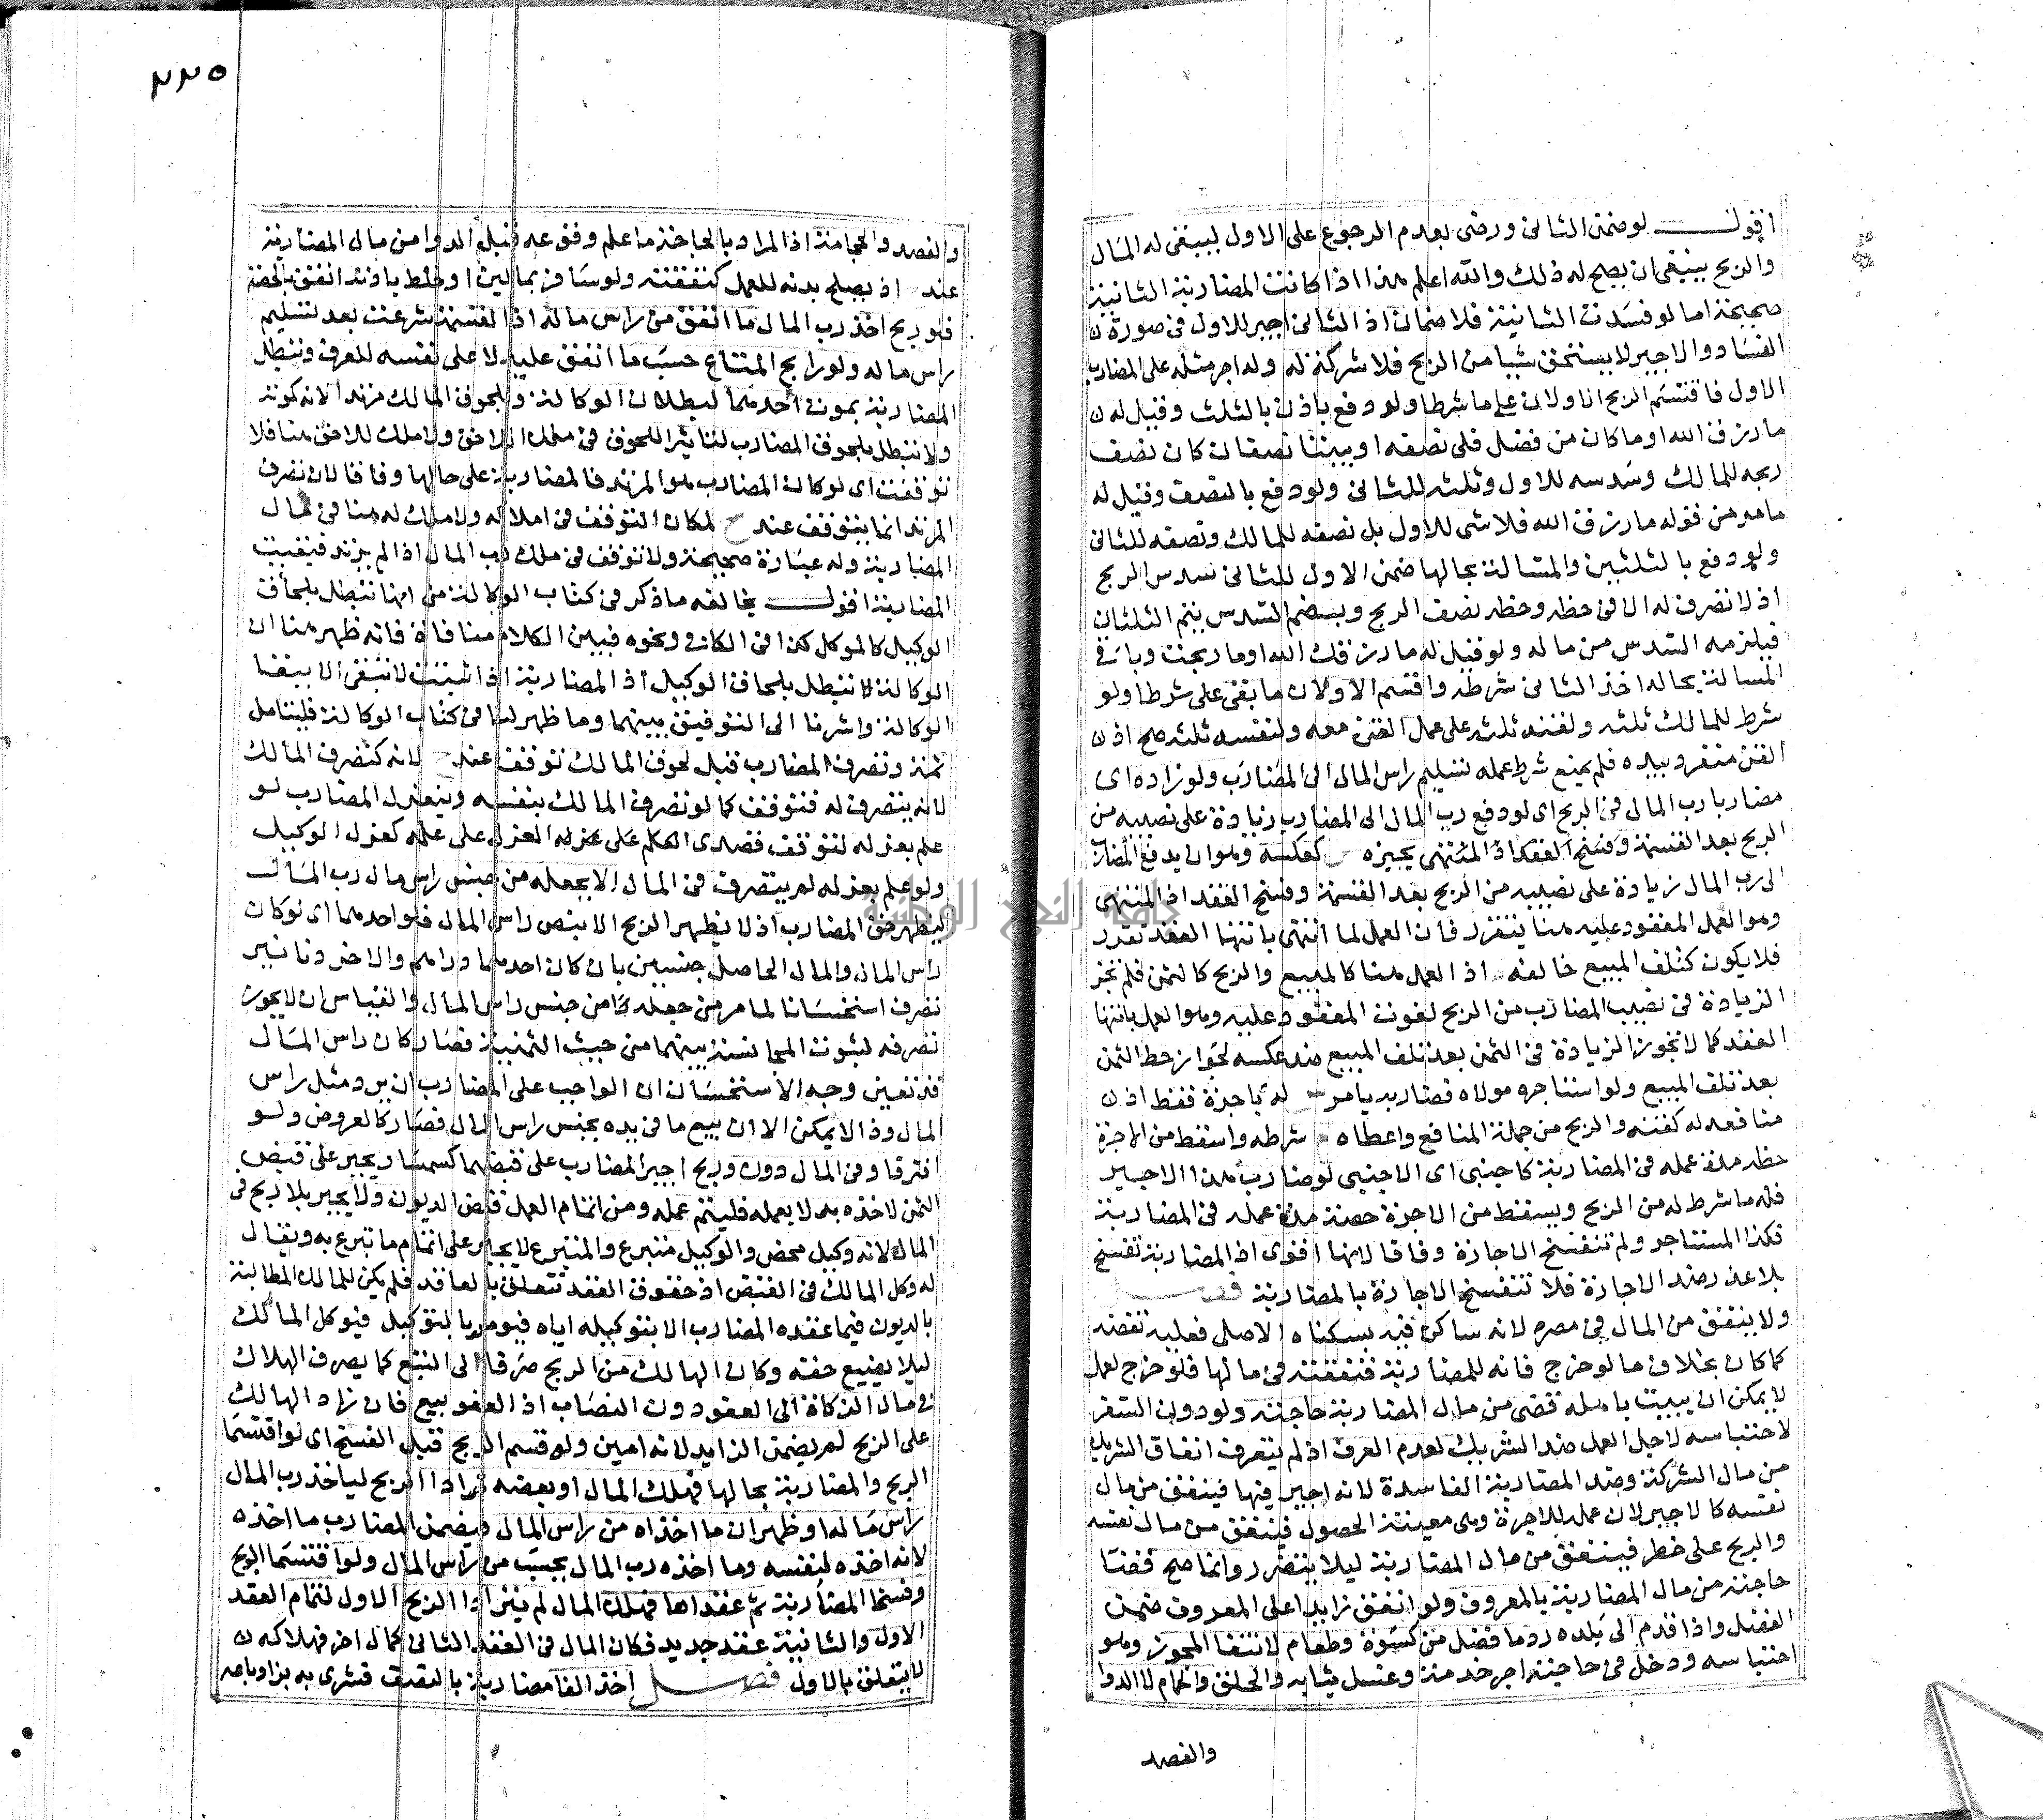 اقول لو ضمن الثاني ورضي بعدم الرجوع على الاول ليبقى له المال
والربح ينبغي ان يصح له ذلك والله اعلم هذا اذا كانت المضاربة الثانية
صحيحة اما لو فسدت الثانية فلا ضمان اذ الثاني اجير للاول في صورة ن
الفساد والاجير لا يستحق شيا من الربح فلا شركة له وله اجر مثله على المضارب
الاول فاقتسم الربح الاولان على ما شرطا ولو دفع باذن بالثلث وقيل له ن
ما رزق الله او ما كان من فضل فلي نصفه او بيننا نصفان كان نصف
ربحه للمالك وسدسه للاول وثلثه للثاني ولو دفع بالنصف وقيل له
ما مر من قوله ما رزق الله فلا شي للاول بل نصفه للمالك ونصفه للثاني
ولو دفع بالثلثين والمسالة بحالها ضمن الاول للثاني سدس الربح
اذ لا تصرف له الا في حظه وحظه نصف الربح وبضم السدس يتم الثلثان
فيلزمه السدس من ماله ولو قيل له ما رزقك الله او ما ربحت وباقي
المسالة بحاله اخذ الثاني شرطه واقتسم الاولان ما بقي على شرطا ولو
شرط للمالك ثلثه ولقنه ثلثه على عمل القن معه ولنفسه ثلثه صح اذ ن
القن منفرد بيده فلم يمنع شرط عمله تسليم راس المال الى المضارب ولو زاده اى
مضاربا رب المال في الربح اى لو دفع رب المال الى المضارب زيادة على نصيبه من
الربح بعد القسمة وفسخ العقد اذ المنتهى يجيزه كعكسه وهو ان يدفع المضارب
الى رب المال زيادة على نصيبه من الربح بعد القسمة وفسخ العقد اذ المنتهى
وهو العمل المعقود عليه هنا يتقرر فان العمل لما انتهى بانتها العقد تقرر
فلا يكون كتلف المبيع خالفه اذ العمل هنا كالمبيع والربح كالثمن فلم تجز
الزيادة في نصيب المضارب من الربح لفوت المعقود عليه وهو العمل بانتها
العقد كما لا تجوز الزيادة في الثمن بعد تلف المبيع ضد عكسه لجواز حط الثمن
بعد تلف المبيع ولو استاجره مولاه فضاربه يامر له باجرة فقط اذ ن
منافعه له كقنه والربح من جملة المنافع واعطاه شرطه واسقط من الاجرة
حظه مدة عمله في المضاربة كاجنبي اى الاجنبي لو ضارب هذا الاجير
فله ما شرط له من الربح ويسقط من الاجرة حصة مدة عمله في المضاربة
فكذا المستاجر ولم تنفسخ الاجارة وفاقا لانها اقوى اذ المضاربة تفسخ
بلا عذر ضد الاجارة فلا تنفسخ الاجارة بالمضاربة فصل
ولا ينفق من المال في مصره لانه ساكن فيه بسكناه الاصلي فعليه نفقته
كما كان بخلاف ما لو خرج فانه للمضاربة فنفقته في مالها فلو خرج لعمل
لا يمكن ان يبيت باهله قضى من مال المضاربة حاجته ولو دون السفر
لاحتباسه لاجل العمل ضد الشريك لعدم العرف اذ لم يتعرف انفاق الشريك
من مال الشركة وضد المضاربة الفاسدة لانه اجير فيها فينفق من مال
نفسه كالاجير لان عمله للاجرة وهي معينة الحصول فينفق من مال نفسه
والربح على خطر فينفق من مال المضاربة ليلا يتضرر وانما صح قضا
حاجته من مال المضاربة بالمعروف ولو انفق زايدا على المعروف ضمن
الفضل واذا قدم الى بلده رد ما فضل من كسوة وطعام لانتفا المجوز وهو
احتباسه ودخل في حاجته اجر خدمته وغسل ثيابه والحلق والحمام لا الدوا
والفصد
٢٢٥
والفصد والحجامة اذ المراد بالحاجة ما علم وقوعه قيل الدوا من مال المضاربة
عند اذ يصلح بدنه للعمل كنفقته ولو سافر بمالين او خلط باذنه انفق بالحصة
فلو ربح اخذ رب المال ما انفق من راس ماله اذ القسمة شرعت بعد تسليم
راس ماله ولو رابح المتاع حسب ما انفق عليه لا على نفسه للعرف وتبطل
المضاربة بموت احدهما لبطلان الوكالة ولحوق المالك مرتدا لانه كموته
ولا تبطل بلحوق المضارب لتاثير اللحوق في ملك اللاحق ولا ملك للاحق هنا فلا
توقفت اى لو كان المضارب هو المرتد فالمضاربة على حالها وفاقا لان تصرف
المرتد انما يتوقف عند لمكان التوقف في املاكه ولا ملك له هنا في مال
المضاربة وله عبارة صحيحة ولا توقف في ملك رب المال اذا لم يرتد فبقيت
المضاربة اقول يخالفه ما ذكر في كتاب الوكالة من انها تبطل بلحاق
الوكيل كالموكل كذا في الكافي ونحوه فبين الكلام منافاة فانه ظهر هنا ان
الوكالة لا تبطل بلحاق الوكيل اذ المضاربة اذا ثبتت لا تبقى الا ببقا
الوكالة واشرنا الى التوفيق بينهما وما ظهر لنا في كتاب الوكالة فليتامل
ثمة وتصرف المضارب قبل لحوق المالك توقف عند لانه كتصرف المالك
لانه يتصرف له فتوقف كما لو تصرف المالك بنفسه وينعزل المضارب لو
علم بعزله لتوقف قصدى الحكم على عزله العزل على علمه كعزل الوكيل
ولو علم بعزله لم يتصرف في المال الا بجعله من جنس راس مال رب المال
ليظهر حق المضارب اذ لا يظهر الربح الا بنض راس المال فلو احدهما اى لو كان
راس المال والمال الحاصل جنسين بان كان احدهما دراهم والاخر دنانير
تصرف استحسانا لما مر من جعله من جنس راس المال والقياس ان لا يجوز
تصرفه لثبوت المجانسة بينهما من حيث الثمنية فصار كان راس المال
قد تعين وجه الاستحسان ان الواجب على المضارب ان يرد مثل راس
المال وذا لا يمكن الا ان يبيع ما في يده بجنس راس المال فصار كالعروض ولو
افترقا وفي المال دون وربح اجبر المضارب على قبضهما كسمسار يجبر على قبض
الثمن لاخذه بدلا بعمله فليتم عمله ومن اتمام العمل قبض الديون ولا يجبر بلا ربح في
المال لانه وكيل محض والوكيل متبرع والمتبرع لا يجبر على اتمام ما تبرع به ويقال
له وكل المالك في القبض اذ حقوق العقد تتعلق بالعاقد فلم يكن للمالك المطالبة
بالديون فيما عقده المضارب الا بتوكيله اياه فيومر بالتوكيل فيوكل المالك
ليلا يضيع حقه وكان الهالك من الربح صرفا الى التبع كما يصرف الهلاك
في مال الزكاة الى العفو دون النصاب اذ العفو تبع فان زاد الهالك
على الربح لم يضمن الزايد لانه امين ولو قسم الربح قبل الفسخ اى لو اقتسما
الربح والمضاربة بحالها فهلك المال او بعضه ترادا الربح لياخذ رب المال
راس ماله او ظهر ان ما اخذاه من راس المال فيضمن المضارب ما اخذه
لانه اخذه لنفسه وما اخذه رب المال يحسب من راس المال ولو اقتسما الربح
وفسخا المضاربة ثم عقداها فهلك المال لم يترادا الربح الاول لتمام العقد
الاول والثانية عقد جديد فكان المال في العقد الثاني كمال اخر فهلاكه ن
لا يتعلق بالاول فصل اخذ الفا مضاربة بالنصف فشرى به بزا وباعه
جامعة النجاح الوطنية